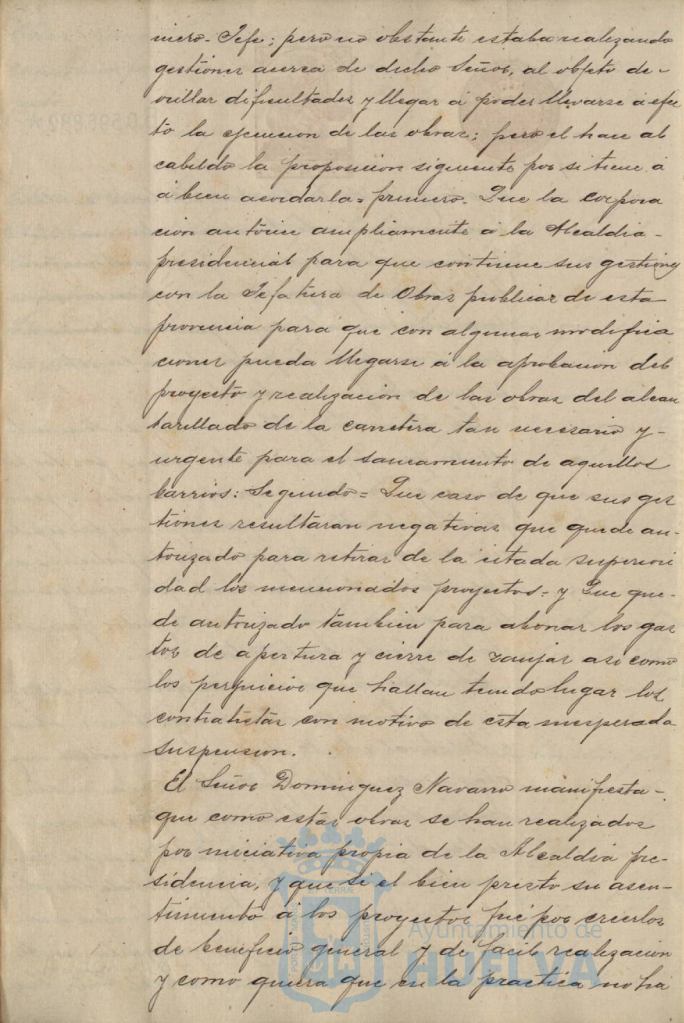 niero-Jefe; pero no obstante estaba realizando
gestiones acerca de dicho Señor, al objeto de-
orillar dificultades y llegar á poder llevarse á efec
to la ejecucion de las obras; pero el hace al
cabildo la proposicion siguiente por si tiene á
á bien acordarla = primero. Que la corpora
cion autorice ampliamente á la Alcaldia-
presidencial para que continue sus gestiones
con la Jefatura de Obras publicas de esta
provincia para que con algunas modifica
ciones pueda llegarse á la aprobacion del
proyecto y realizacion de las obras del alcan
tarillado de la carretera tan necesario y-
urgente para el saneamiento de aquellos
barrios: Segundo = Que caso de que sus ges
tiones resultaran negativas que quede au-
torizado para retirar de la citada superiori
dad los mencionados proyectos = y Que que-
de autorizado tambien para abonar los gas
tos de apertura y cierre de zanjas asi como
los perjuicios que hallan tenido lugar los
contratistas con motivo de esta inesperada
suspension.
El Señor Dominguez Navarro manifiesta-
que como estas obras se han realizados
por iniciativa propia de la Alcaldia pre-
sidencia, y que si el bien presto su asen-
timiento á los proyectos fué por creerlos
de beneficio general y de facil realizacion
y como quiera que en la practica no ha
Ayuntamiento de
HUELVA